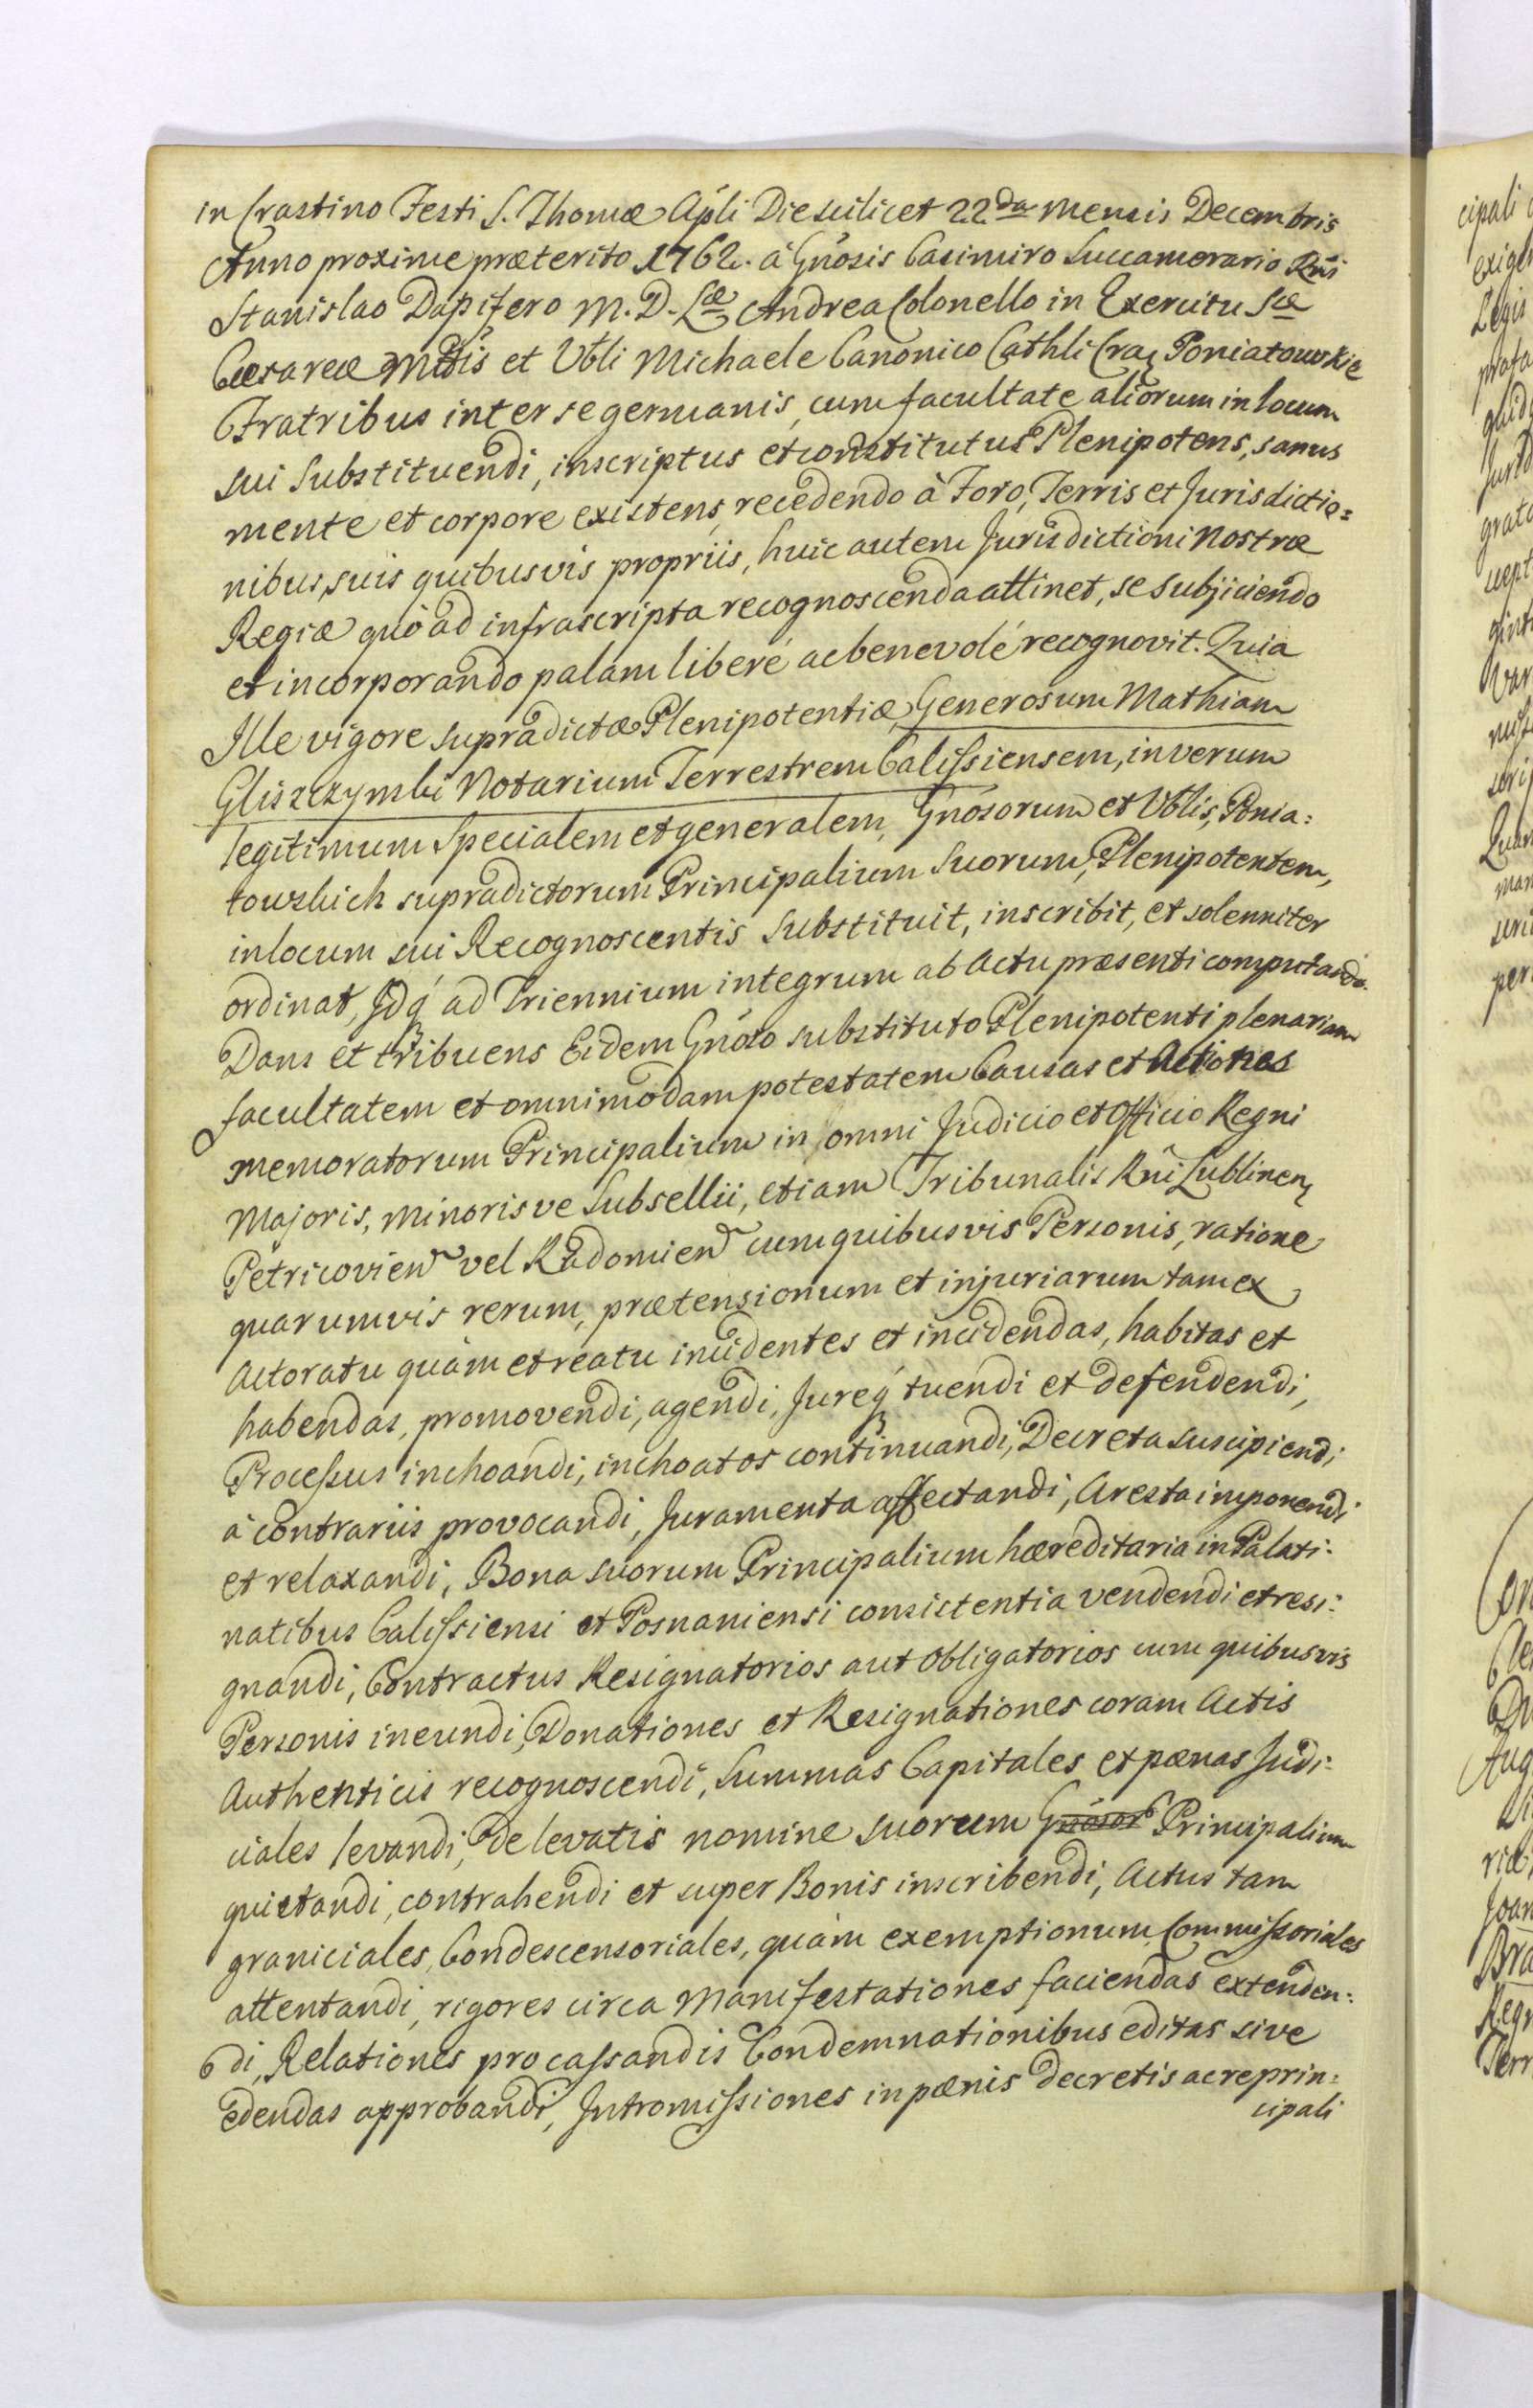 in Crastino Festi S. Thomæ Apli Die scilicet 22da mensis Decembris
Anno proxime præterito 1762. à Gnosis Casimiro Succamerario Rni
Stanislao Dapifero M. D. Læ Andrea Colonello in Exercitu Sæ
Cæsareæ Mttis et Vbli Michaele Canonico Cathli Crac Poniatowskie
Fratribus inter se germanis, cum facultate aliorum in locum
sui Substituendi, inscriptus et constitutus Plenipotens, sanus
mente et corpore existens, recedendo à Foro, Terris et Jurisdictio=
nibus, suis quibusvis propriis, huic autem Jurisdictioni Nostræ
Regiæ quò ad infrascripta recognoscenda attinet, se subjiciendo
et incorporando palam liberé ac benevolé recognovit. Quia
Ille vigore supradictæ Plenipotentiæ, Generosum Mathiam
Gliszczymski Notarium Terrestrem Calissiensem, in verum
legitimum Specialem et generalem, Gnosorum et Vblis, Ponia:
towskich supradictorum Principalium Suorum, Plenipotentem,
in locum sui Recognoscentis Substituit, inscribit, et solenniter
ordinat, Idq ad Triennium integrum ab Actu præsenti computando.
Dans et tribuens Eidem Gnoso substituto Plenipotenti plenariam
facultatem et omnimodam potestatem Causas et Actiones
memoratorum Principalium in omni Judicio et Officio Regni
Majoris, minorisve Subsellii, etiam Tribunalis Rni Lublinen
Petricovien vel Radomien cum quibusvis Personis, ratione
quarumvis rerum, prætensionum et injuriarum tam ex
Actoratu quàm et reatu incidentes et incidendas, habitas et
habendas, promovendi, agendi, Jureq tuendi et defendendi,
Processus inchoandi, inchoatos continuandi, Decreta suscipiendi
à contrariis provocandi, Juramenta affectandi, Aresta imponendi
et relaxandi, Bona suorum Principalium hæreditaria in Palati:
natibus Calissiensi et Posnaniensi consistentia vendendi et resi:
gnandi, Contractus Resignatorios aut Obligatorios cum quibusvis
Personis ineundi, Donationes et Resignationes coram Actis
Authenticis recognoscendi, Summas Capitales et pænas Judi:
ciales levandi, de levatis nomine suorum Gnosor Principalium
quietandi, contrahendi et super Bonis inscribendi, Actus tam
graniciales, Condescensoriales, quàm exemptionum Commissoriales
attentandi, rigores circa Manifestationes faciendas extenden:
di, Relationes pro cassandis Condemnationibus editas sive
edendas approbandi, Intromissiones in pænis decretis ac reprin:
cipali